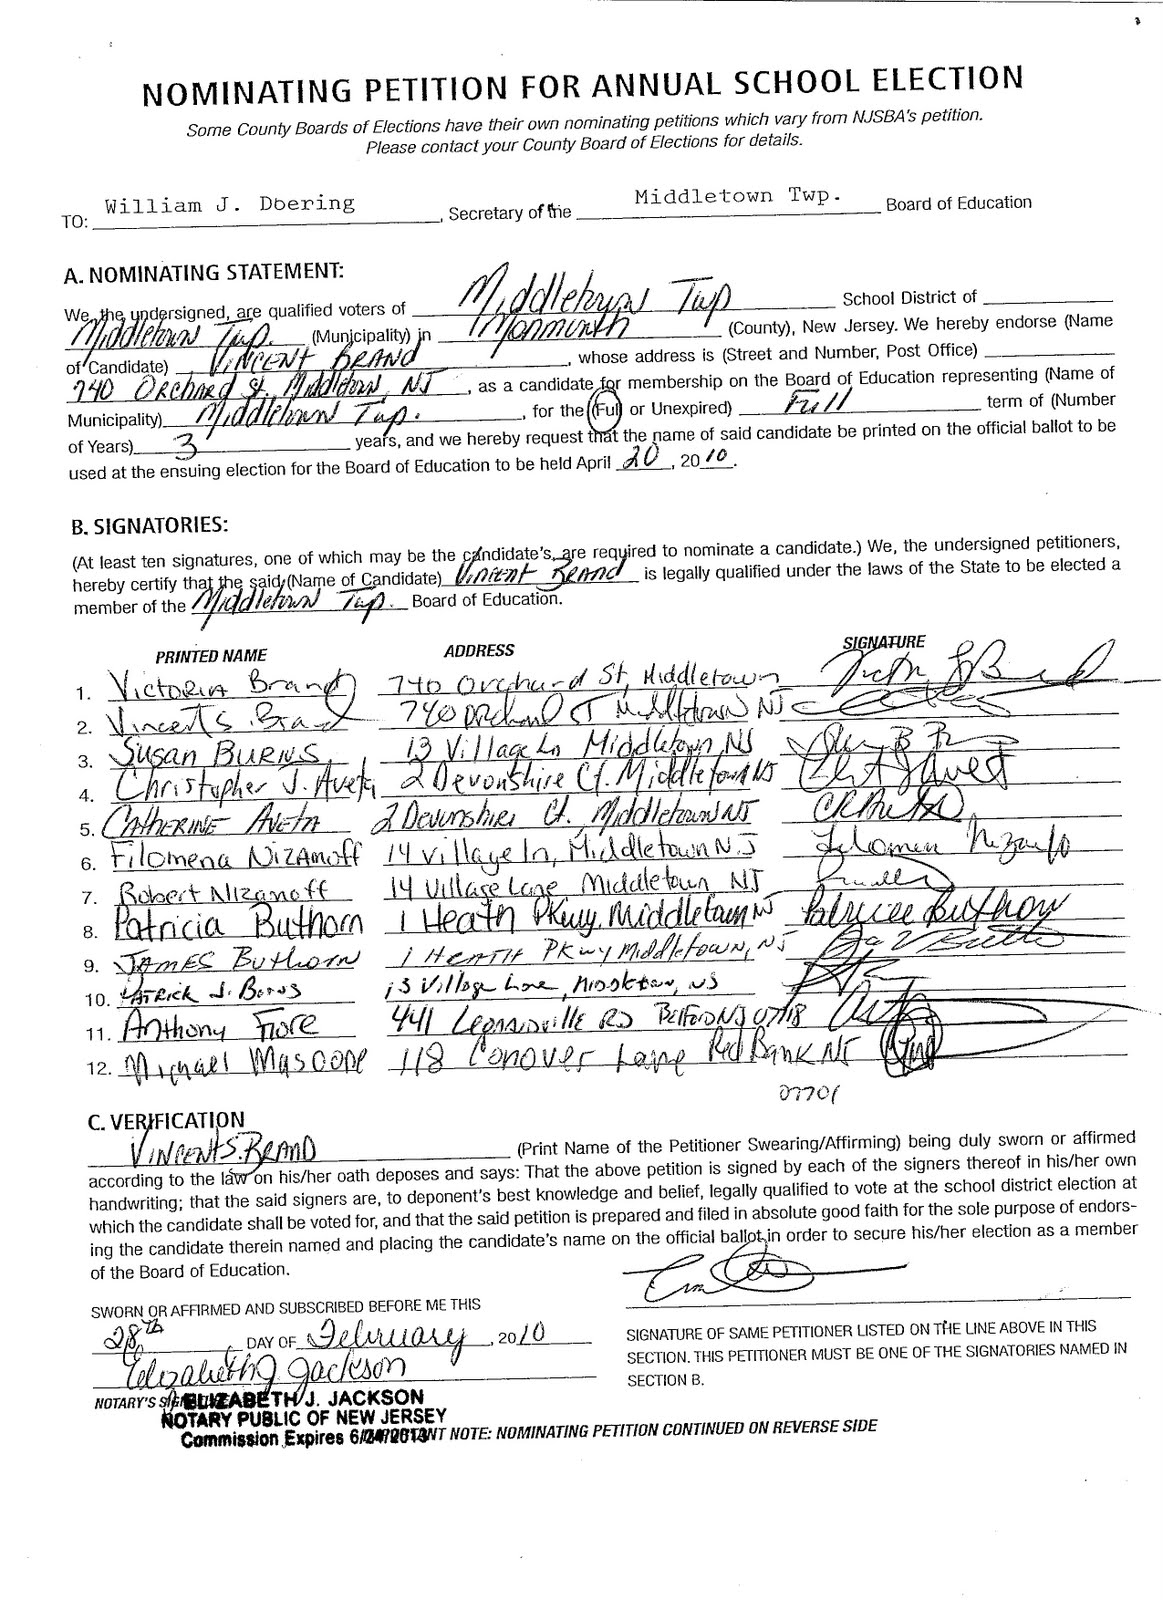 NOMINATING PETITION FOR ANNUAL SCHOOL ELECTION
Some County Boards of Elections have their own nominating petitions which vary from NJSBA's petition.
Please contact your County Board of Elections for details.
TO: William J. Doering, Secretary of the Middletown Twp. Board of Education
A. NOMINATING STATEMENT:
We, the undersigned, are qualified voters of Middletown Twp School District of
Middletown Twp. (Municipality) in Monmouth (County), New Jersey. We hereby endorse (Name
of Candidate) VINCENT BRAND, whose address is (Street and Number, Post Office)
740 Orchard St. Middletown, NJ, as a candidate for membership on the Board of Education representing (Name of
Municipality) Middletown Twp., for the (Full or Unexpired) Full term of (Number
of Years) 3 years, and we hereby request that the name of said candidate be printed on the official ballot to be
used at the ensuing election for the Board of Education to be held April 20, 2010.
B. SIGNATORIES:
(At least ten signatures, one of which may be the candidate's, are required to nominate a candidate.) We, the undersigned petitioners,
hereby certify that the said (Name of Candidate) VINCENT BRAND is legally qualified under the laws of the State to be elected a
member of the Middletown Twp. Board of Education.
PRINTED NAME ADDRESS SIGNATURE
1. Victoria Brand 740 Orchard St, Middletown
2. Vincent S. Brand 740 Orchard ST Middletown NJ
3. SUSAN BURNS 13 Village Ln Middletown, NJ
4. Christopher J. Aveta 2 Devonshire Ct. Middletown NJ
5. CATHERINE AVETA 2 Devonshire Ct. Middletown NJ
6. Filomena Nizamoff 14 Village ln, Middletown N.J
7. Robert Nizamoff 14 Village Lane Middletown NJ
8. Patricia Buthorn 1 Heath Pkwy, Middletown NJ Patricia Buthorn
9. JAMES BUTHORN 1 HEATH PKwy Middletown, NJ
10. PATRICK J. BURNS 13 Village Lane, Middletown, NJ
11. Anthony Fiore 441 Leonardville RD Belford NJ 07718
12. Michael Mascone 118 Conover Lane Red Bank NJ
07701
C. VERIFICATION
VINCENT S. BRAND (Print Name of the Petitioner Swearing/Affirming) being duly sworn or affirmed
according to the law on his/her oath deposes and says: That the above petition is signed by each of the signers thereof in his/her own
handwriting; that the said signers are, to deponent's best knowledge and belief, legally qualified to vote at the school district election at
which the candidate shall be voted for, and that the said petition is prepared and filed in absolute good faith for the sole purpose of endors-
ing the candidate therein named and placing the candidate's name on the official ballot in order to secure his/her election as a member
of the Board of Education.
SWORN OR AFFIRMED AND SUBSCRIBED BEFORE ME THIS
28th DAY OF February, 2010
Elizabeth J Jackson
SIGNATURE OF SAME PETITIONER LISTED ON THE LINE ABOVE IN THIS
SECTION. THIS PETITIONER MUST BE ONE OF THE SIGNATORIES NAMED IN
SECTION B.
NOTARY'S
ELIZABETH J. JACKSON
NOTARY PUBLIC OF NEW JERSEY
Commission Expires
NOTE: NOMINATING PETITION CONTINUED ON REVERSE SIDE